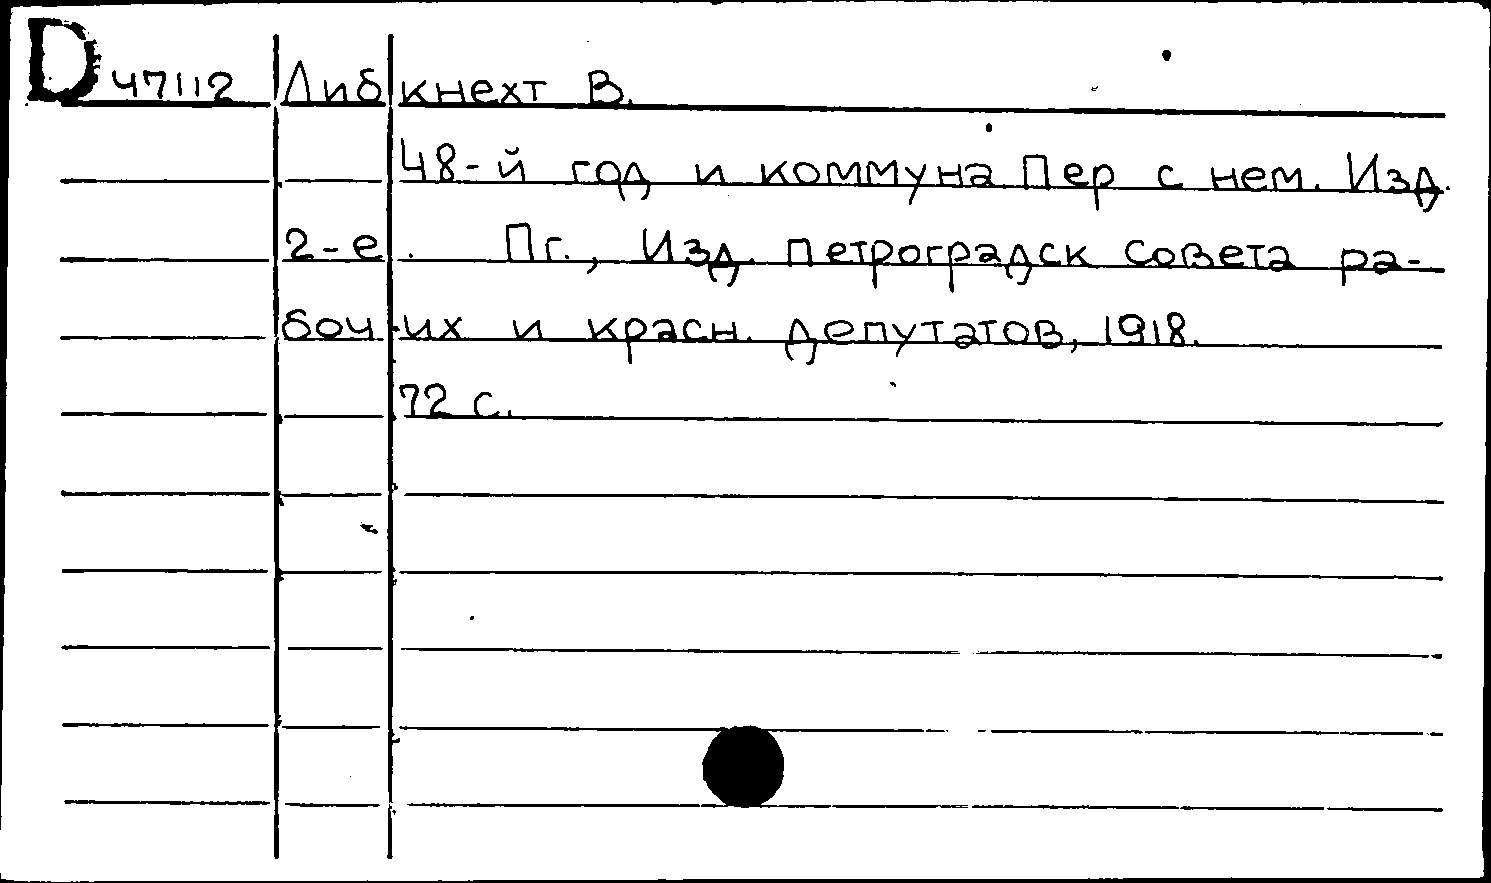 D 47112 Либкнехт В.
48-й год и коммуна Пер с нем. Изд.
2-е. Пг., Изд. петроградск совета ра-
бочих и красн. депутатов, 1918.
72 с.